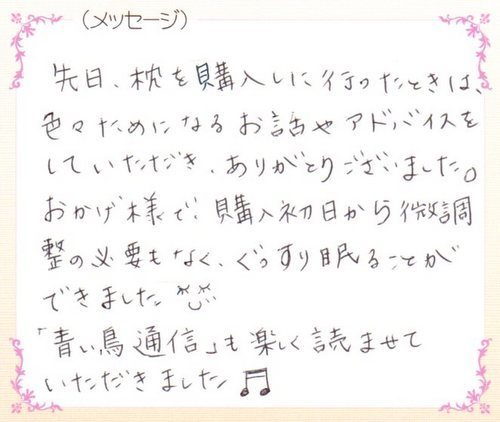 （メッセージ）
先日、枕を購入しに行ったときは、
色々ためになるお話やアドバイスを
していただき、ありがとうございました。
おかげ様で、購入初日から微調
整の必要もなく、ぐっすり眠ることが
できました
「青い鳥通信」も楽しく読ませて
いただきました♫